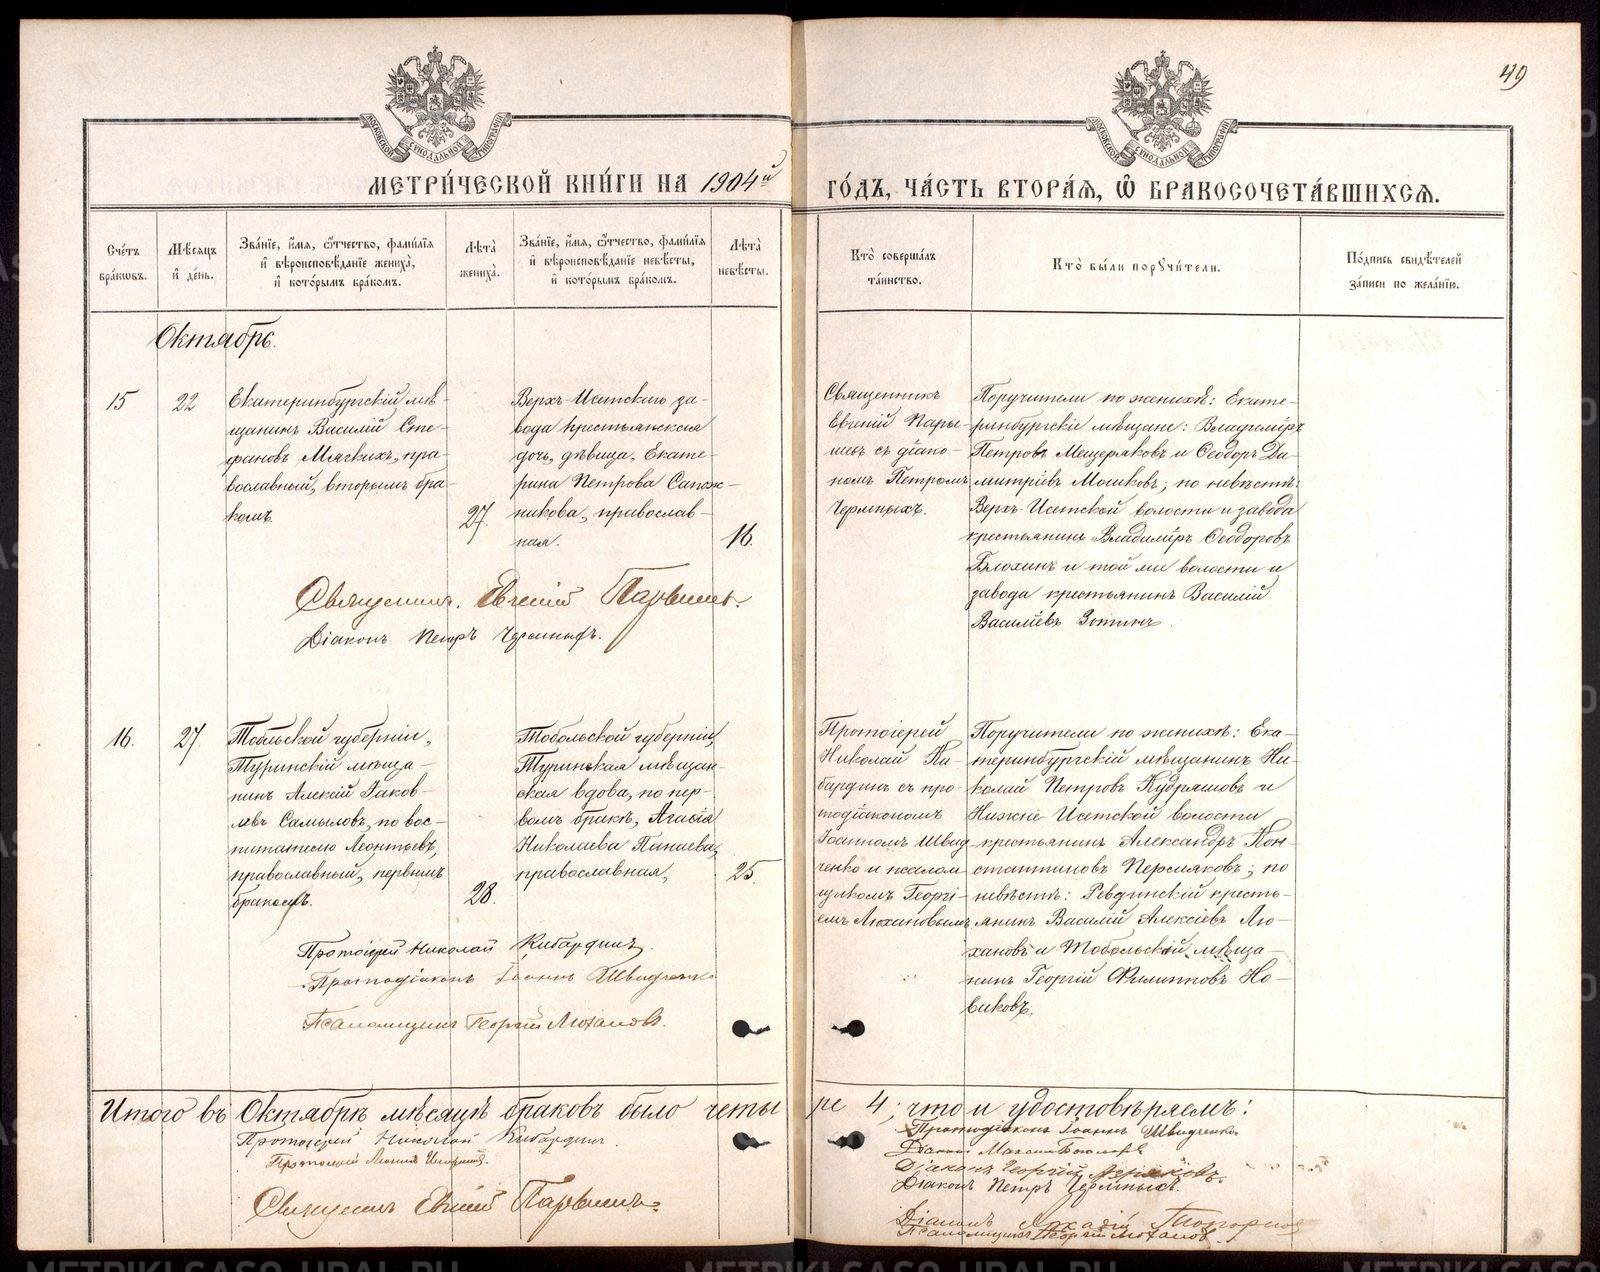 49
МОСКОВСКОЙ СѴНОДАЛЬНОЙ ТИПОГРАФІИ
МОСКОВСКОЙ СѴНОДАЛЬНОЙ ТИПОГРАФІИ
МЕТРИ́ЧЕСКОЙ КНИ́ГИ НА 1904й
ГО́ДЪ, ЧА́СТЬ ВТОРА́Ѧ, Ѽ БРАКОСОЧЕТА́ВШИХСѦ.
Сче́тъ
бра́ковъ.
Мѣ́сѧцъ
и҆ де́нь.
Зва́нїе, и҆́мѧ, ѻ҆́тчество, фами́лїѧ
и҆ вѣроисповѣ́данїе жениха̀,
и҆ кото́рымъ бра́комъ.
Лѣ́та
жениха̀.
Зва́нїе, и҆́мѧ, ѻ҆́тчество, фами́лїѧ
и҆ вѣроисповѣ́данїе невѣ́сты,
и҆ кото́рымъ бра́комъ.
Лѣ́та
невѣ́сты.
Кто̀ соверша́лъ
та́инство.
Кто̀ бы́ли порꙋчи́тели.
По́дпись свидѣ́телей
за́писи по жела́нїю.
Октябрь.
15
22
Екатеринбургскій мѣ-
щанинъ Василій Сте-
фановъ Мягкихъ, пра-
вославный, вторымъ бра-
комъ.
27.
Верхъ-Исетскаго за-
вода крестьянская
дочь, дѣвица, Екате-
рина Петрова Сапож-
никова, православ-
ная.
16.
Священникъ
Евгеній Пары-
шевъ съ діако-
номъ Петромъ
Чермныхъ.
Поручители по женихѣ: Екате-
ринбургскіе мѣщане: Владиміръ
Петровъ Мещеряковъ и Ѳеодоръ Ди-
митріевъ Мошковъ; по невѣстѣ:
Верхъ-Исетской волости и завода
крестьянинъ Владиміръ Ѳеодоровъ
Блохинъ и той же волости и
завода крестьянинъ Василій
Василіевъ Зотинъ.
Священникъ Евгеній Парышевъ.
Діаконъ Петръ Чермныхъ.
16.
27.
Тобольской губерніи,
Туринскій мѣща-
нинъ Алексій Іаков-
левъ Самыловъ, по вос-
питателю Леонтьевъ,
православный, первымъ
бракомъ.
28.
Тобольской губерніи,
Туринская мѣщан-
ская вдова, по пер-
вомъ бракѣ, Агафія
Николаева Панаева,
православная,
25.
Протоіерей
Николай Ки-
бардинъ съ про-
тодіакономъ
Іоанномъ Швид-
ченко и псалом
щикомъ Георгі-
емъ Люхановымъ
Поручители по женихѣ: Ека-
теринбургскій мѣщанинъ Ни-
колай Петровъ Кудряшовъ и
Нижне-Исетской волости
крестьянинъ Александръ Кон-
стантиновъ Пермяковъ; по
невѣстѣ: Ревдинскій кресть-
янинъ Василій Алексіевъ Лю-
хановъ и Тобольскій мѣща-
нинъ Георгій Филипповъ Но-
виковъ.
Протоіерей Николай Кибардинъ.
Протодіаконъ Іоаннъ Швидченко
Псаломщикъ Георгій Люхановъ.
Итого въ Октябрѣ мѣсяцѣ браковъ было четы
ре 4; что и удостовѣряемъ:
Протоіерей Николай Кибардинъ.
Протоіерей
Священникъ Евгеній Парышевъ
Протодіаконъ Іоаннъ Швидченко
Діаконъ
Діаконъ Георгій
Діаконъ Петръ Чермныхъ.
Діаконъ Аркадій
Псаломщикъ Георгій Люхановъ.
METRIKI.GASO-URAL.RU
METRIKI.GASO-URAL.RU